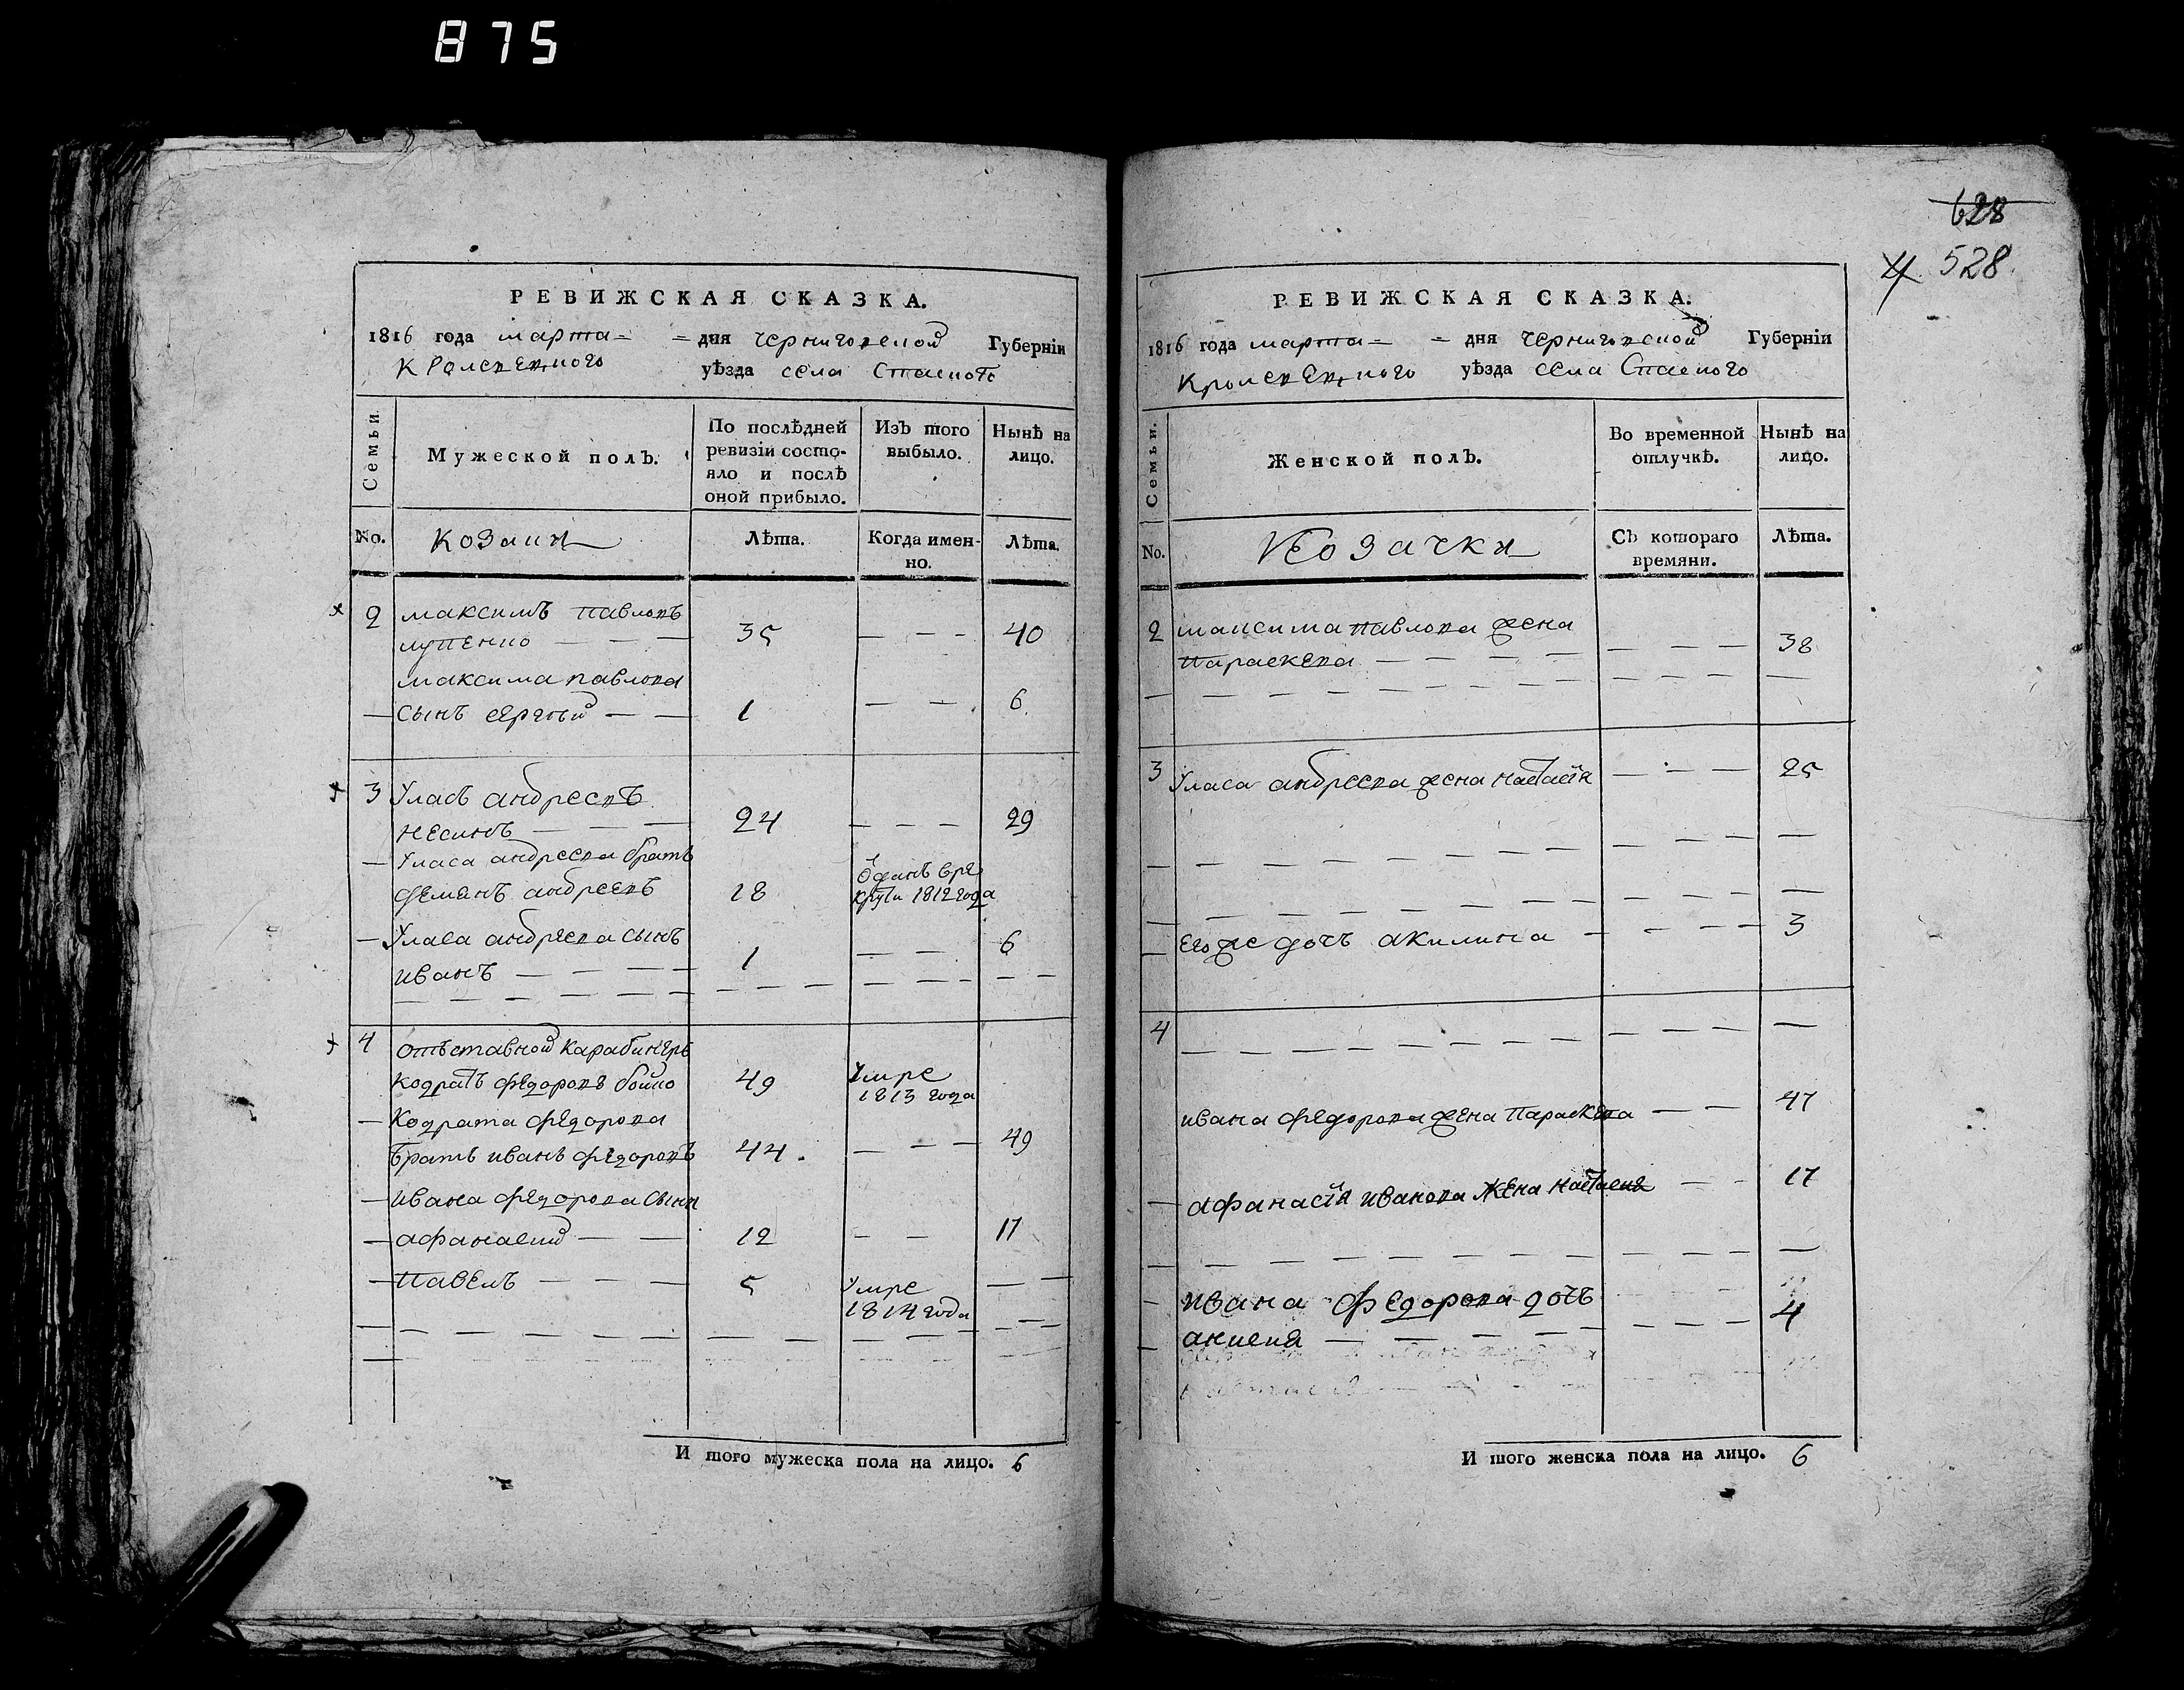 875
628
4 528.
РЕВИЖСКАЯ СКАЗКА.
1816 года марта = = дня черниговской Губерніи
Кролевецкого уѣзда села Спаского
Семьи.
Мужеской полъ.
По послѣдней
ревизіи состо-
яло и послѣ
оной прибыло.
Изъ того
выбыло.
Нынѣ на
лицо.
No. козаки Лѣта. Когда имен-
но. Лѣта.
2 максимъ павловъ
35 — — — 40
максима павлова
— сынъ сергѣй — — 1 — — 6
3 Уласъ андреевъ
24 — — — 29
— Уласа андреева братъ
демянъ андреевъ 18 Отданъ врѣ
круты 1812 года
— Уласа андреева сынъ
иванъ — — — — 1 — — 6
4 отъставной карабинеръ
кодратъ федоровъ бойко 49 Умре
1813 года
— Кодрата федорова
братъ иванъ федоровъ 44. — — — 49
— ивана федорова сыни
— афанасий — — 12 — — 17
— павелъ — — — 5 Умре — —
1814 года
И того мужеска пола на лицо. 6
РЕВИЖСКАЯ СКАЗКА.
1816 года марта = = дня черниговской Губерніи
Кролевецкого уѣзда села Спаского
Семьи.
Женской полъ.
Во временной
отлучкѣ.
Нынѣ на
лицо.
No. Козачки Съ котораго
времяни. Лѣта.
2 максима павлова жена
параскева — — — — — — — 38
3 Уласа андреева жена настасія — — — 25
— Его же дочъ акилина — — — — 3
4
ивана федорова жена параскева — — 47
— афанасія иванова жена настасия — — 17
— ивана федорова дочъ
— анисия — — — — — — — — 4
И того женска пола на лицо. 6